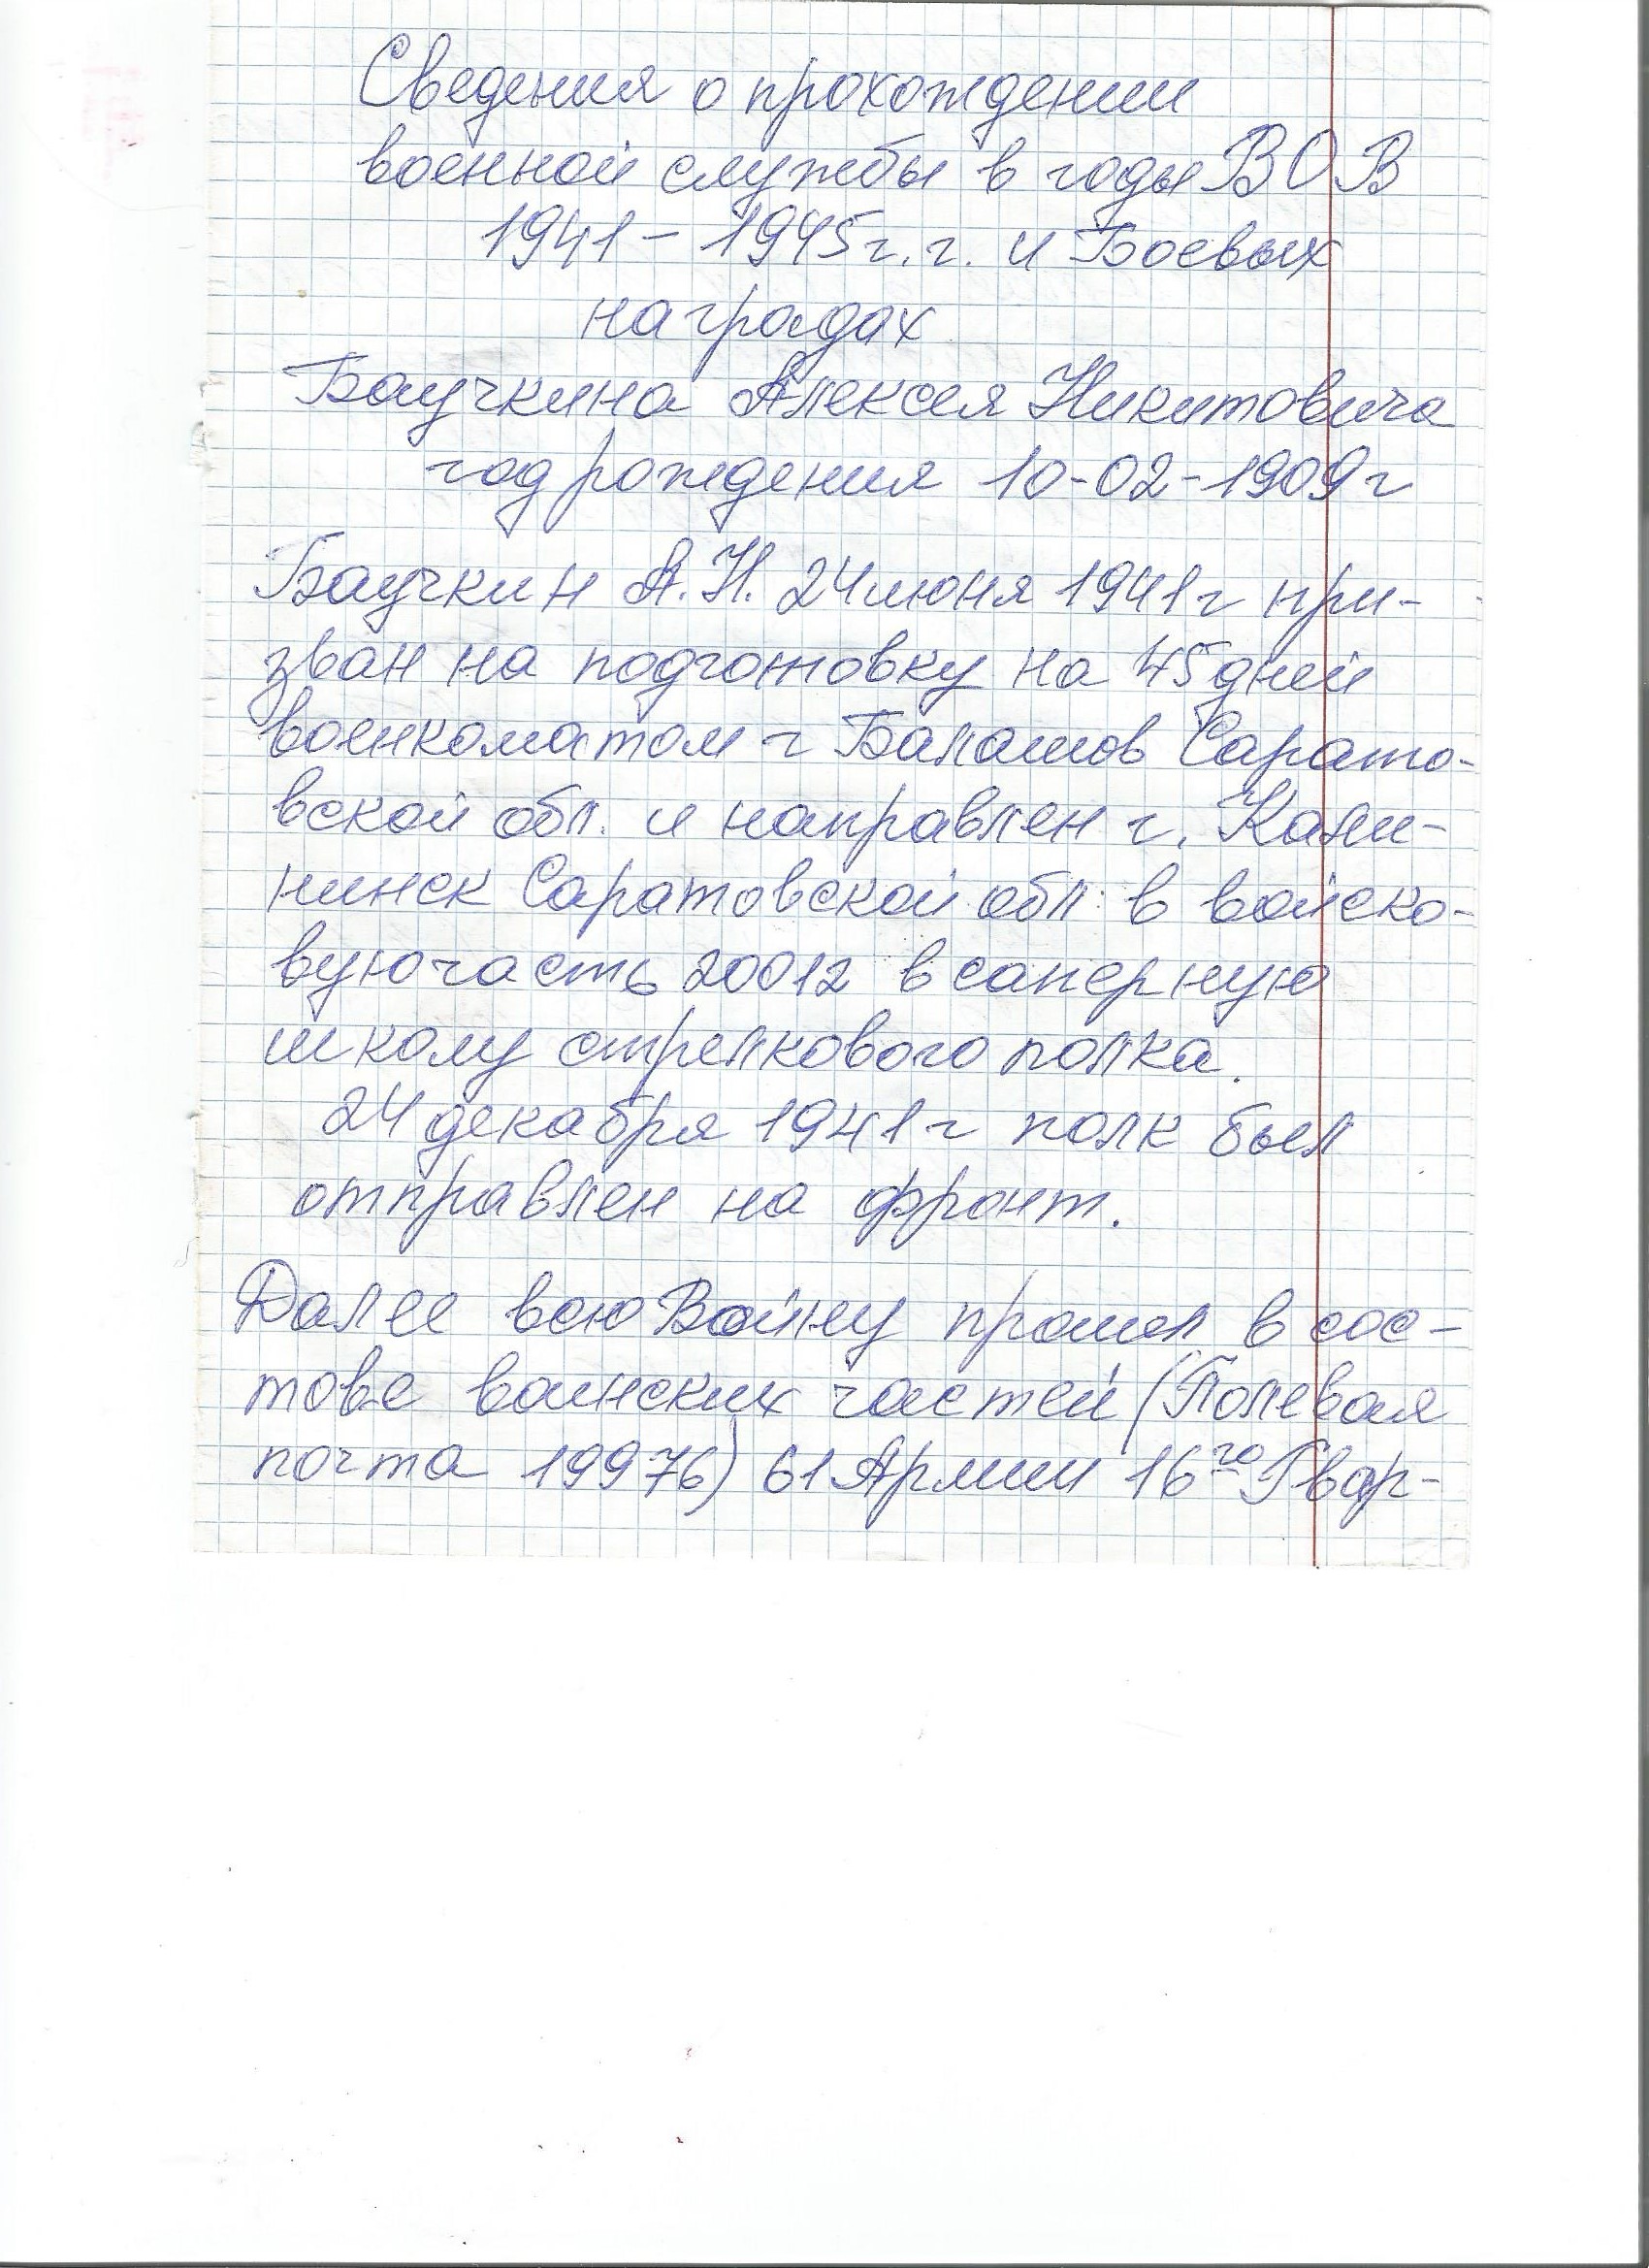 Сведения о прохождении
военной службы в годы ВОВ
1941 – 1945 г.г. и Боевых
наградах
Баучкина Алексея Никитовича
год рождения 10-02-1909 г
Баучкин А.Н. 24 июня 1941 г при-
зван на подготовку на 45 дней
военкоматом г Балашов Сарато-
вской обл. и направлен г. Кали-
нинск Саратовской обл. в войско-
вую часть 20012 в саперную
школу стрелкового полка.
24 декабря 1941 г полк был
отправлен на фронт.
Далее всю Войну прошел в сос-
тове воинских частей (Полевая
почта 19976) 61 Армии 16го Гвар-